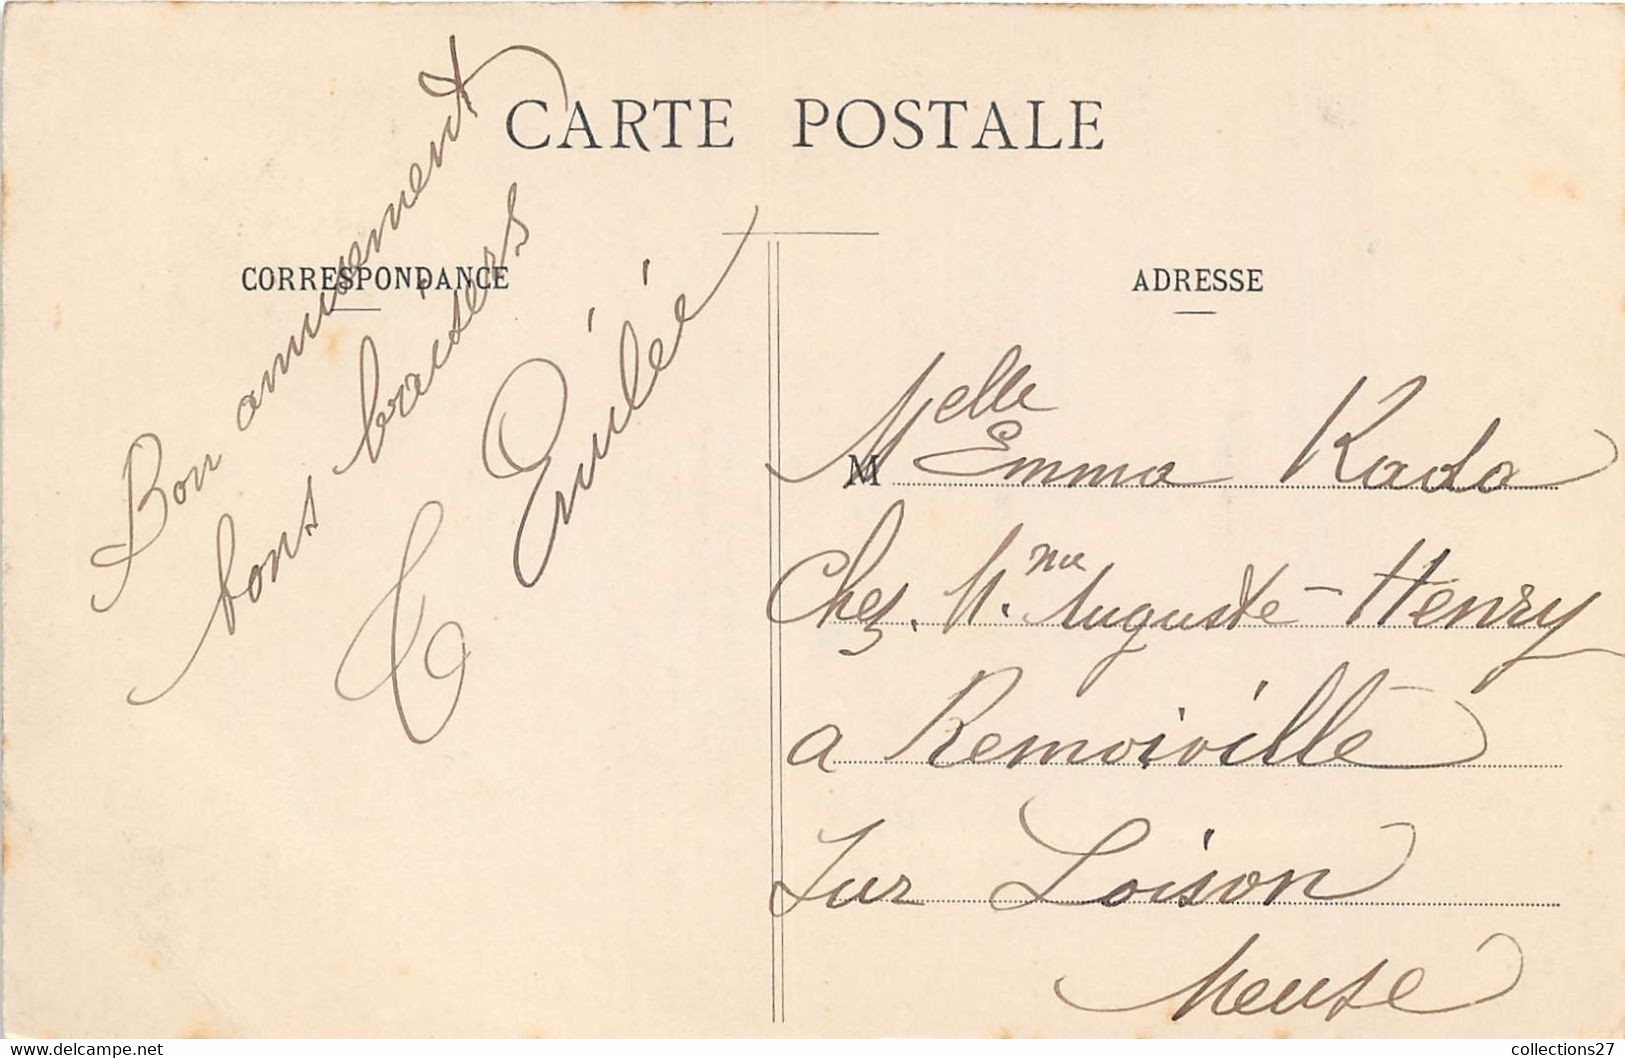 CARTE POSTALE
CORRESPONDANCE
Bon amusement
bons baisers
ADRESSE
M
Melle Emma Kada
Chez. Mme Auguste-Henry
a Remoiville
Sur Loison
Meuse
collections27